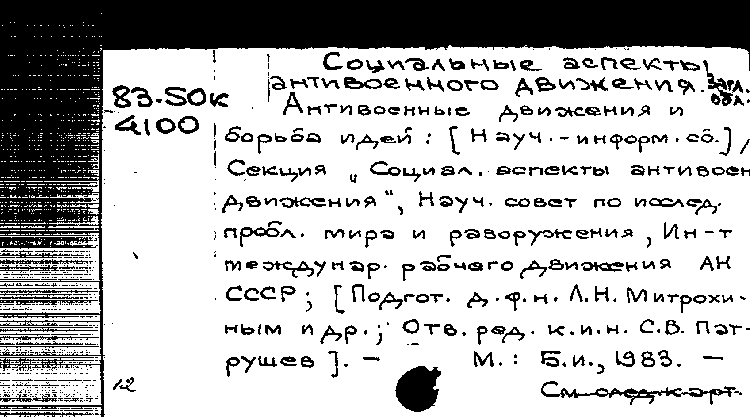 Социальные аспекты
антивоенного движения. Загл. обл.
83-50к
4100
Антивоенные движения и
борьба идей : [ Науч.-информ. сб.] /
Секция „Социал. аспекты антивоен
движения", Науч. совет по исслед.
пробл. мира и разоружения, Ин-т
междунар. рабочего движения АН
СССР ; [ Подгот. д.ф.н. Л.Н. Митрохи-
ным и др. ; Отв. ред. к.и.н. С.В. Пат-
рушев ]. – М. : Б.и., 1983. –
12
См. след. карт.